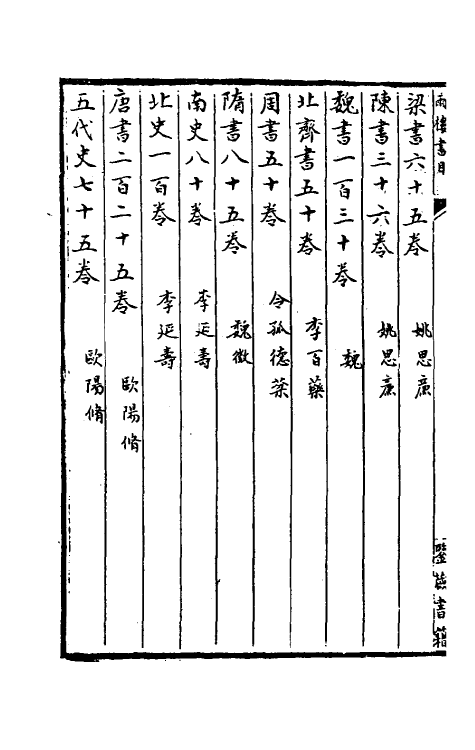 兩樓書目
梁書六十五卷　姚思廉
陳書三十六卷　姚思廉
魏書一百三十卷　魏
北齊書五十卷　李百藥
周書五十卷　令狐德棻
隋書八十五卷　魏徵
南史八十卷　李延壽
北史一百卷　李延壽
唐書二百二十五卷　歐陽脩
五代史七十五卷　歐陽脩
書籍